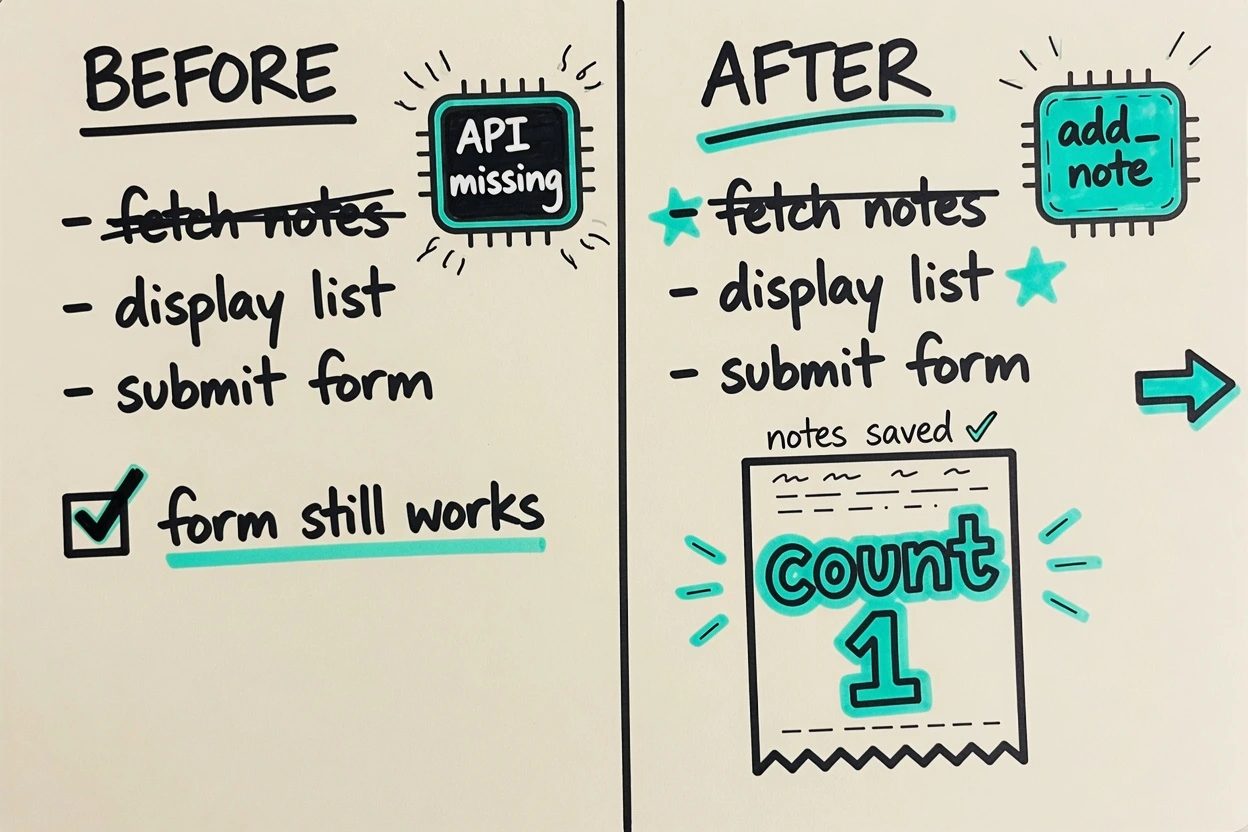 BEFORE
API
missing
- fetch notes
- display list
- submit form
form still works
AFTER
add_
note
- fetch notes
- display list
- submit form
notes saved ✓
count
1